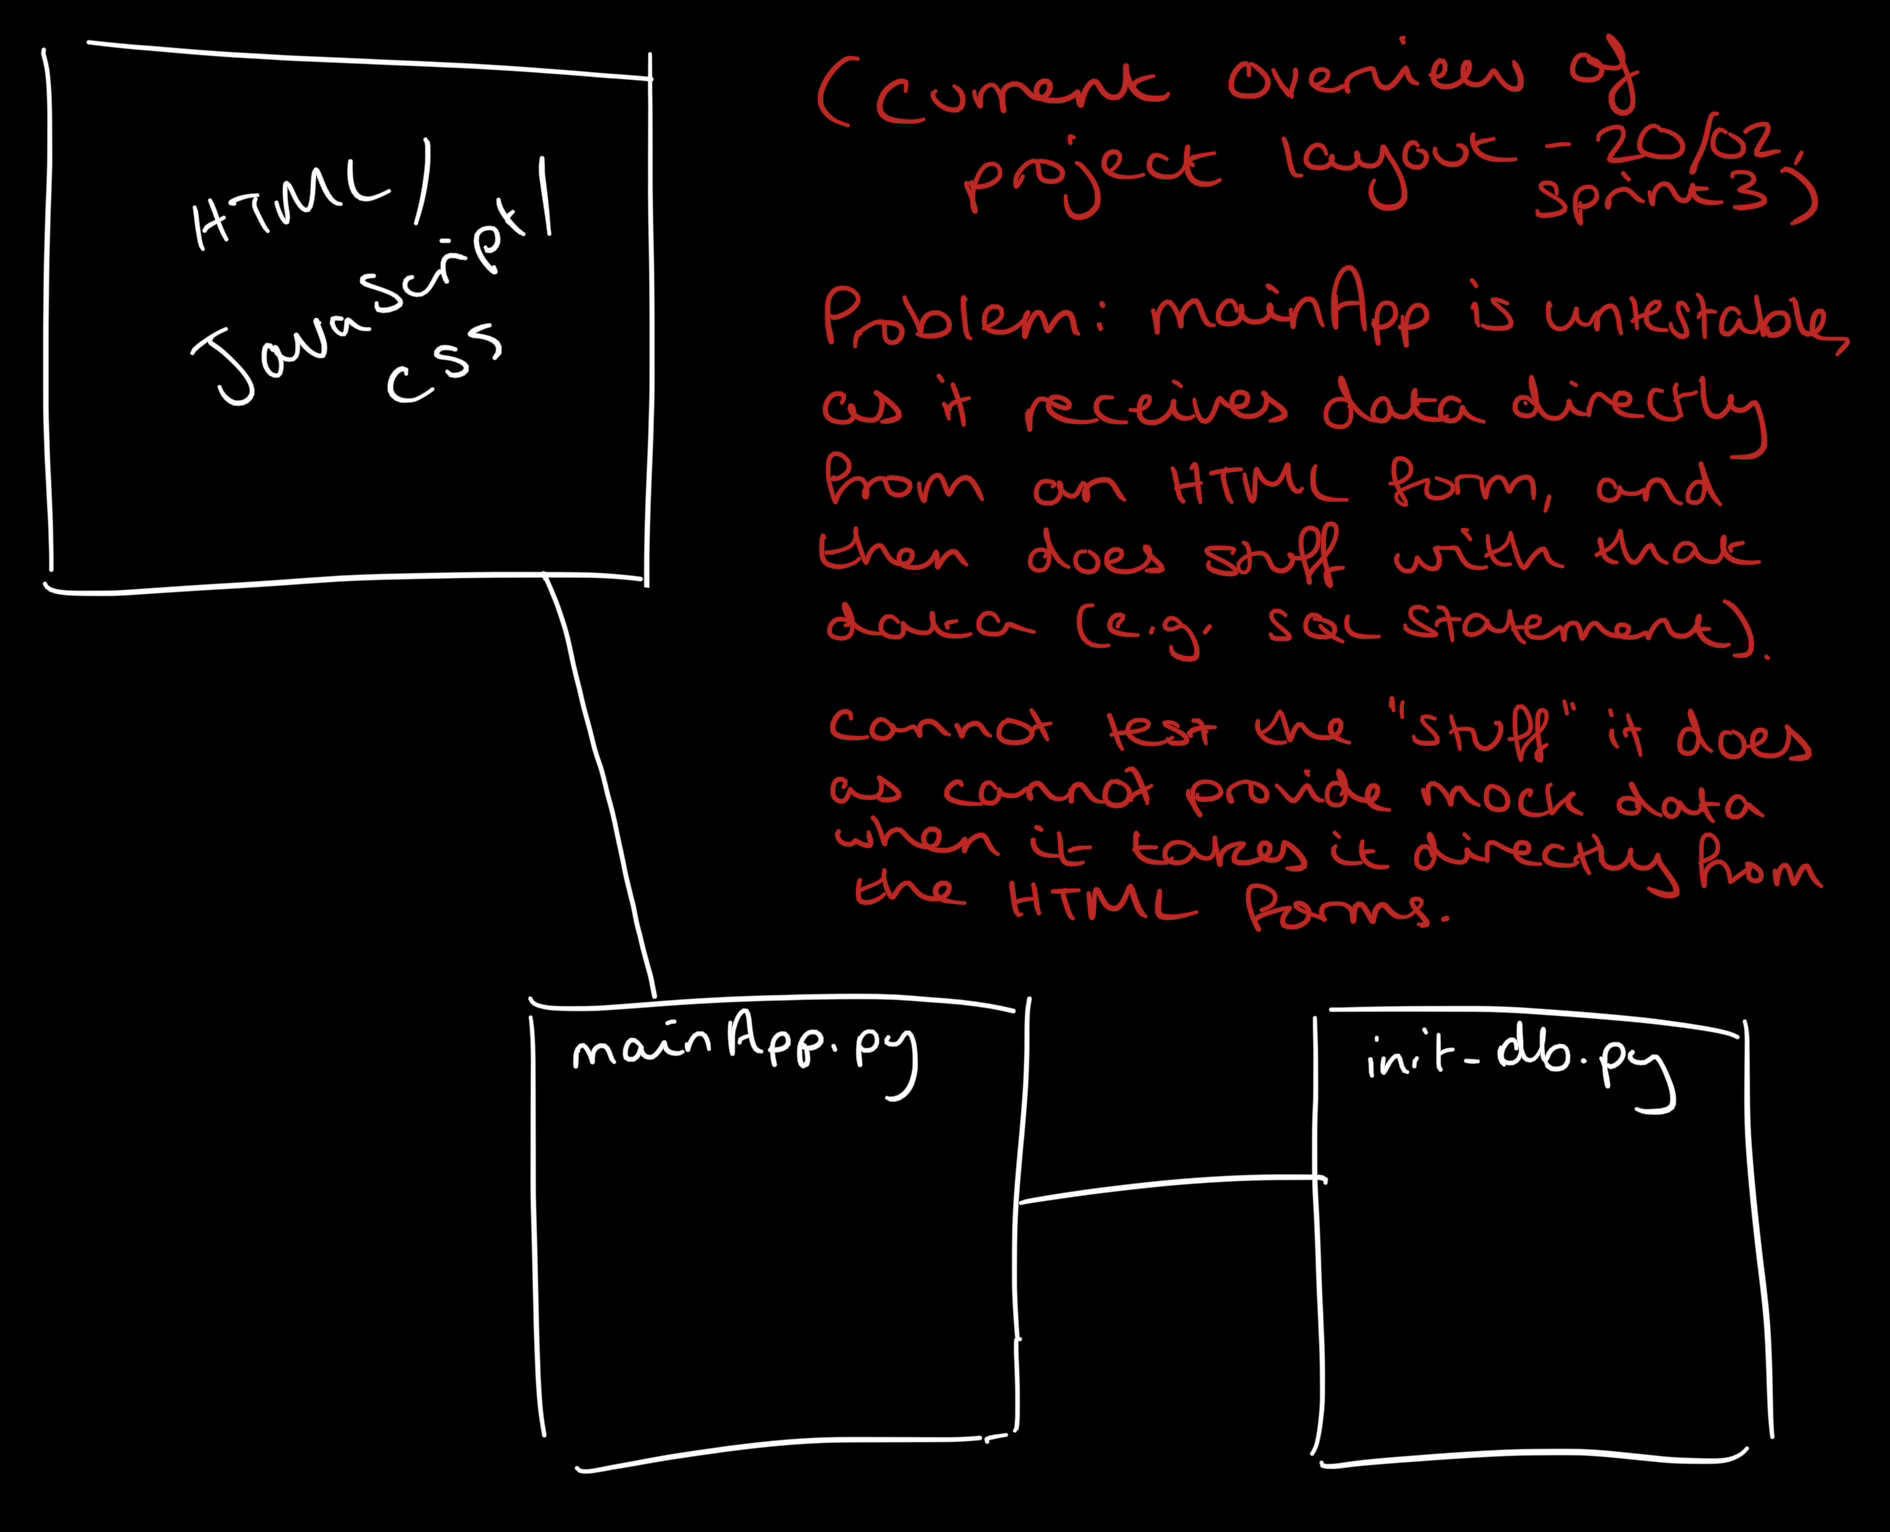 HTML/
JavaScript/
css
(Current overview of
project layout - 20/02,
sprint 3)
Problem: mainApp is untestable,
as it receives data directly
from an HTML form, and
then does stuff with that
data (e.g. SQL statement).
Cannot test the "stuff" it does
as cannot provide mock data
when it takes it directly from
the HTML forms.
mainApp.py
init-db.py